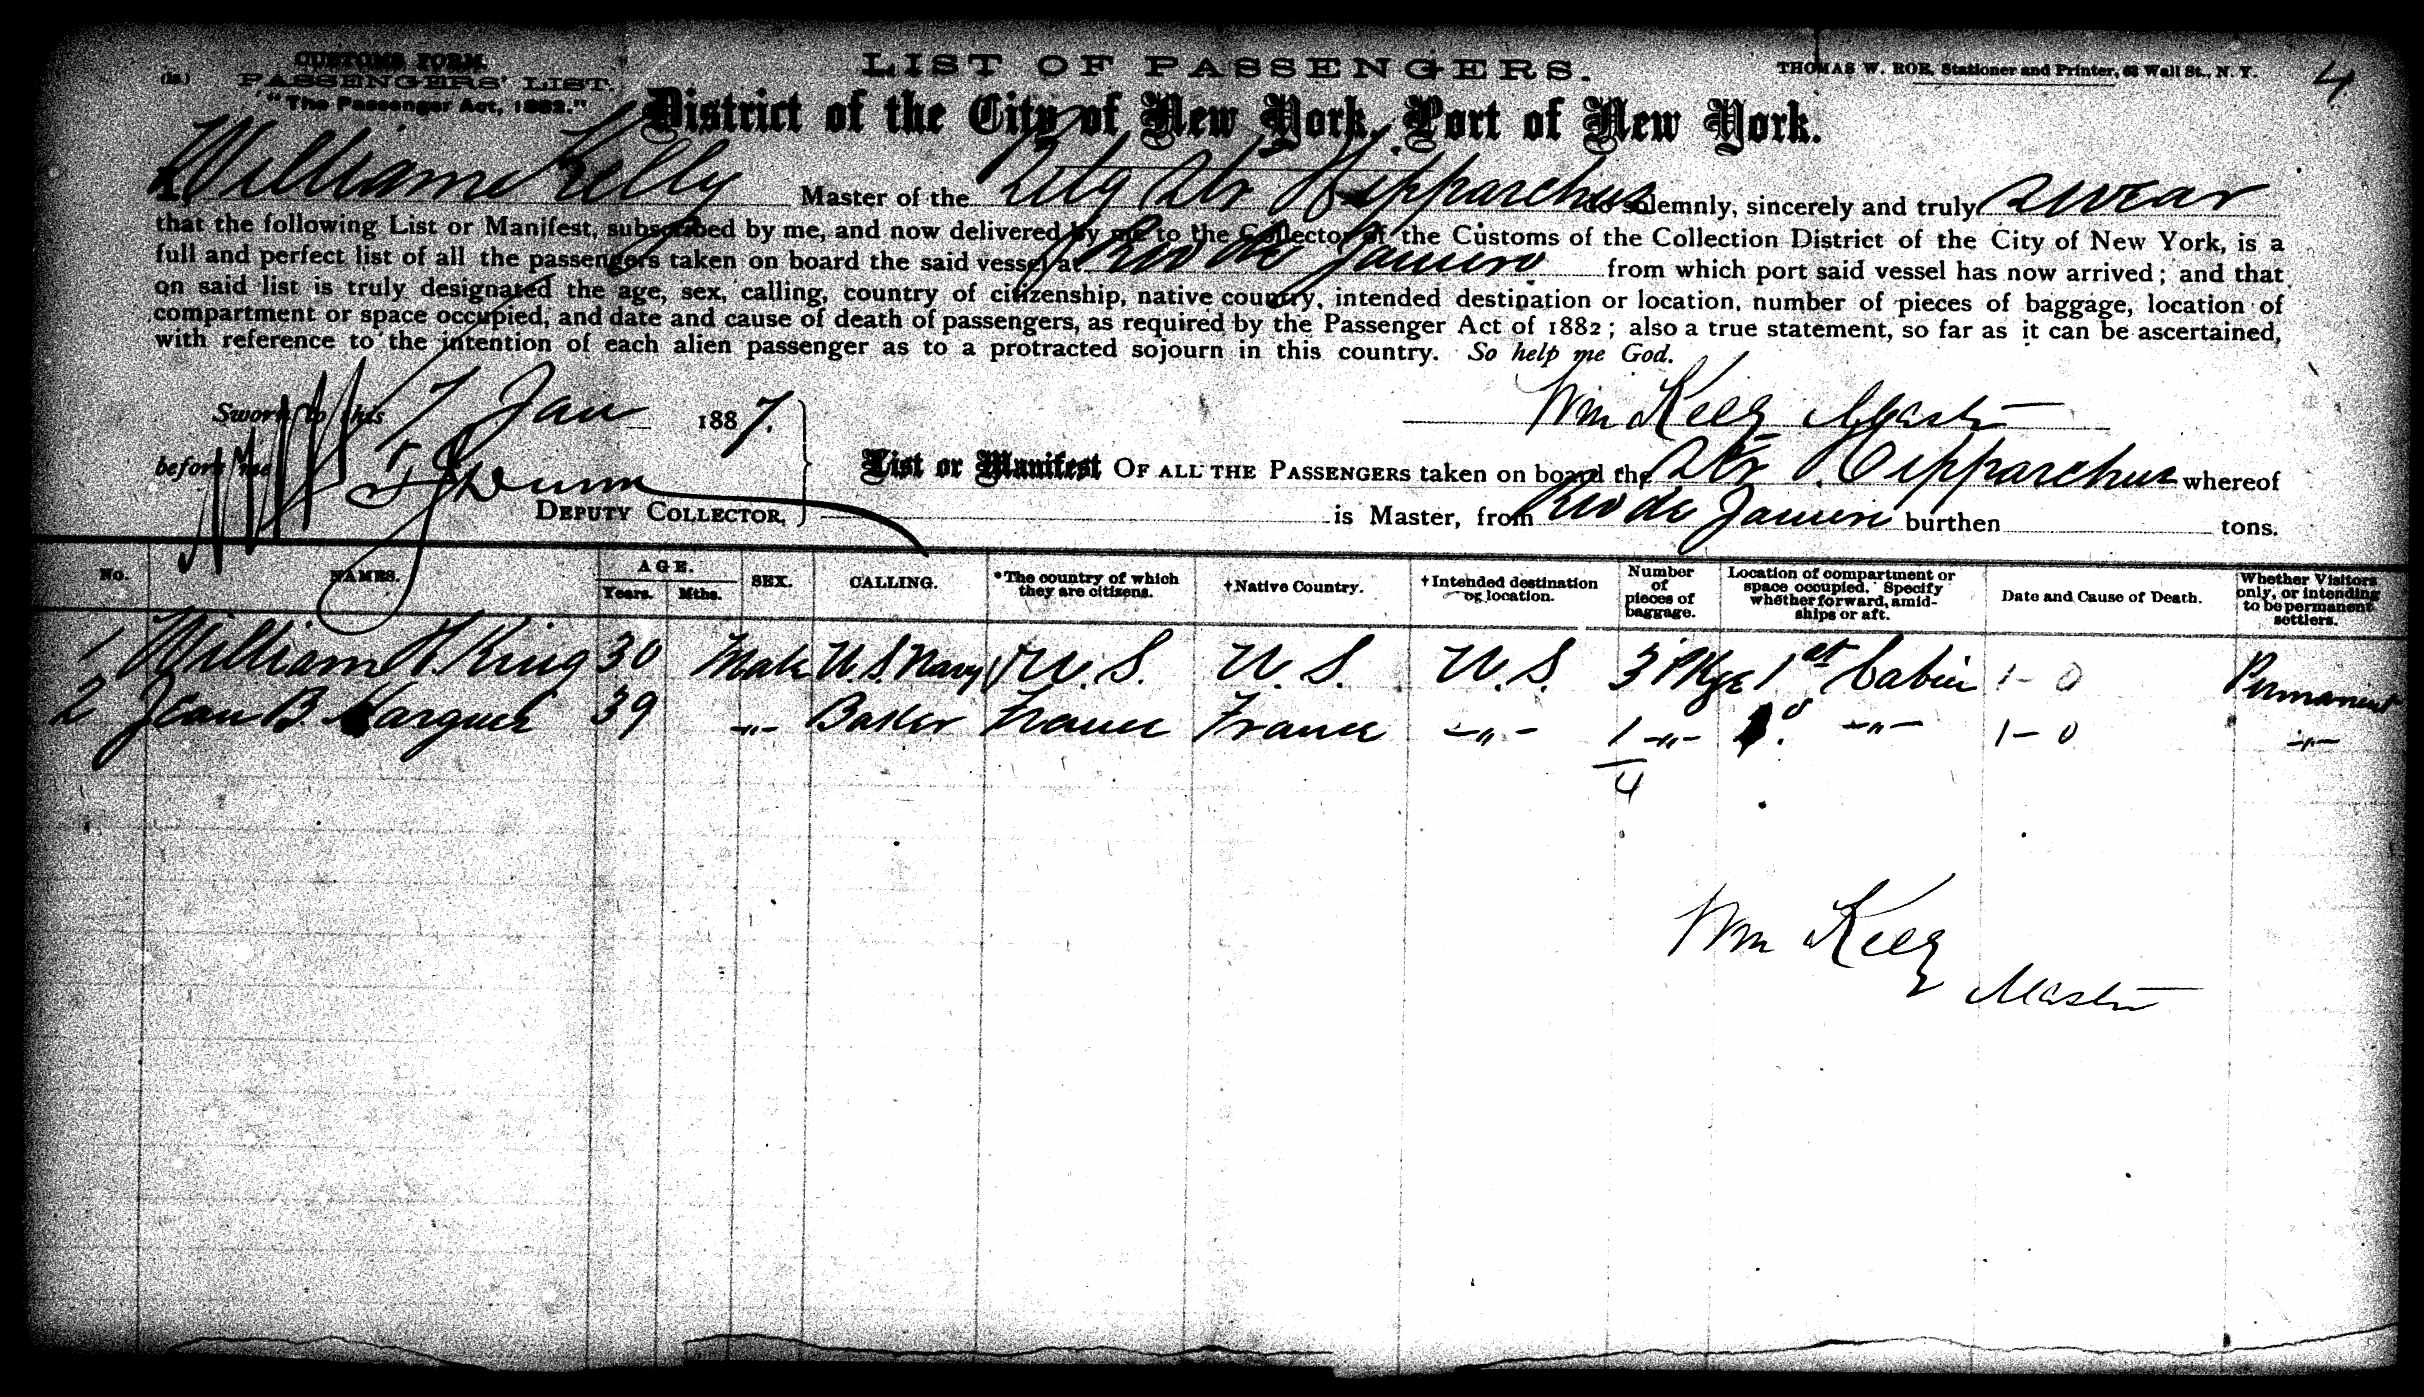 CUSTOMS FORM.
(18.) PASSENGERS' LIST.
"The Passenger Act, 1882."
LIST OF PASSENGERS.
THOMAS W. ROE, Stationer and Printer, 63 Wall St., N. Y.
4
District of the City of New York, Port of New York.
I, William Kelly Master of the Str Hipparchus do solemnly, sincerely and truly swear
that the following List or Manifest, subscribed by me, and now delivered by me to the Collector of the Customs of the Collection District of the City of New York, is a
full and perfect list of all the passengers taken on board the said vessel at Rio de Janeiro from which port said vessel has now arrived; and that
on said list is truly designated the age, sex, calling, country of citizenship, native country, intended destination or location, number of pieces of baggage, location of
compartment or space occupied, and date and cause of death of passengers, as required by the Passenger Act of 1882; also a true statement, so far as it can be ascertained,
with reference to the intention of each alien passenger as to a protracted sojourn in this country. So help me God.
Sworn to this 7 Jan 1887.
Wm Kelly Master
before me Dunn
DEPUTY COLLECTOR,
List or Manifest OF ALL THE PASSENGERS taken on board the Str Hipparchus whereof
is Master, from Rio de Janeiro burthen tons.
No. NAMES. AGE. Years. Mths. SEX. CALLING. *The country of which they are citizens. †Native Country. †Intended destination or location. Number of pieces of baggage. Location of compartment or space occupied. Specify whether forward, amidships or aft. Date and Cause of Death. Whether Visitors only, or intending to be permanent settlers.
1 William H. King 30 Male U.S. Navy U.S. U.S. U.S. 3 Pkge 1st Cabin 1-0 Permanent
2 Jean B. 39 -"- Baker France France -"- 1 -"- -"- 1-0 -"-
4
Wm Kelly
Master